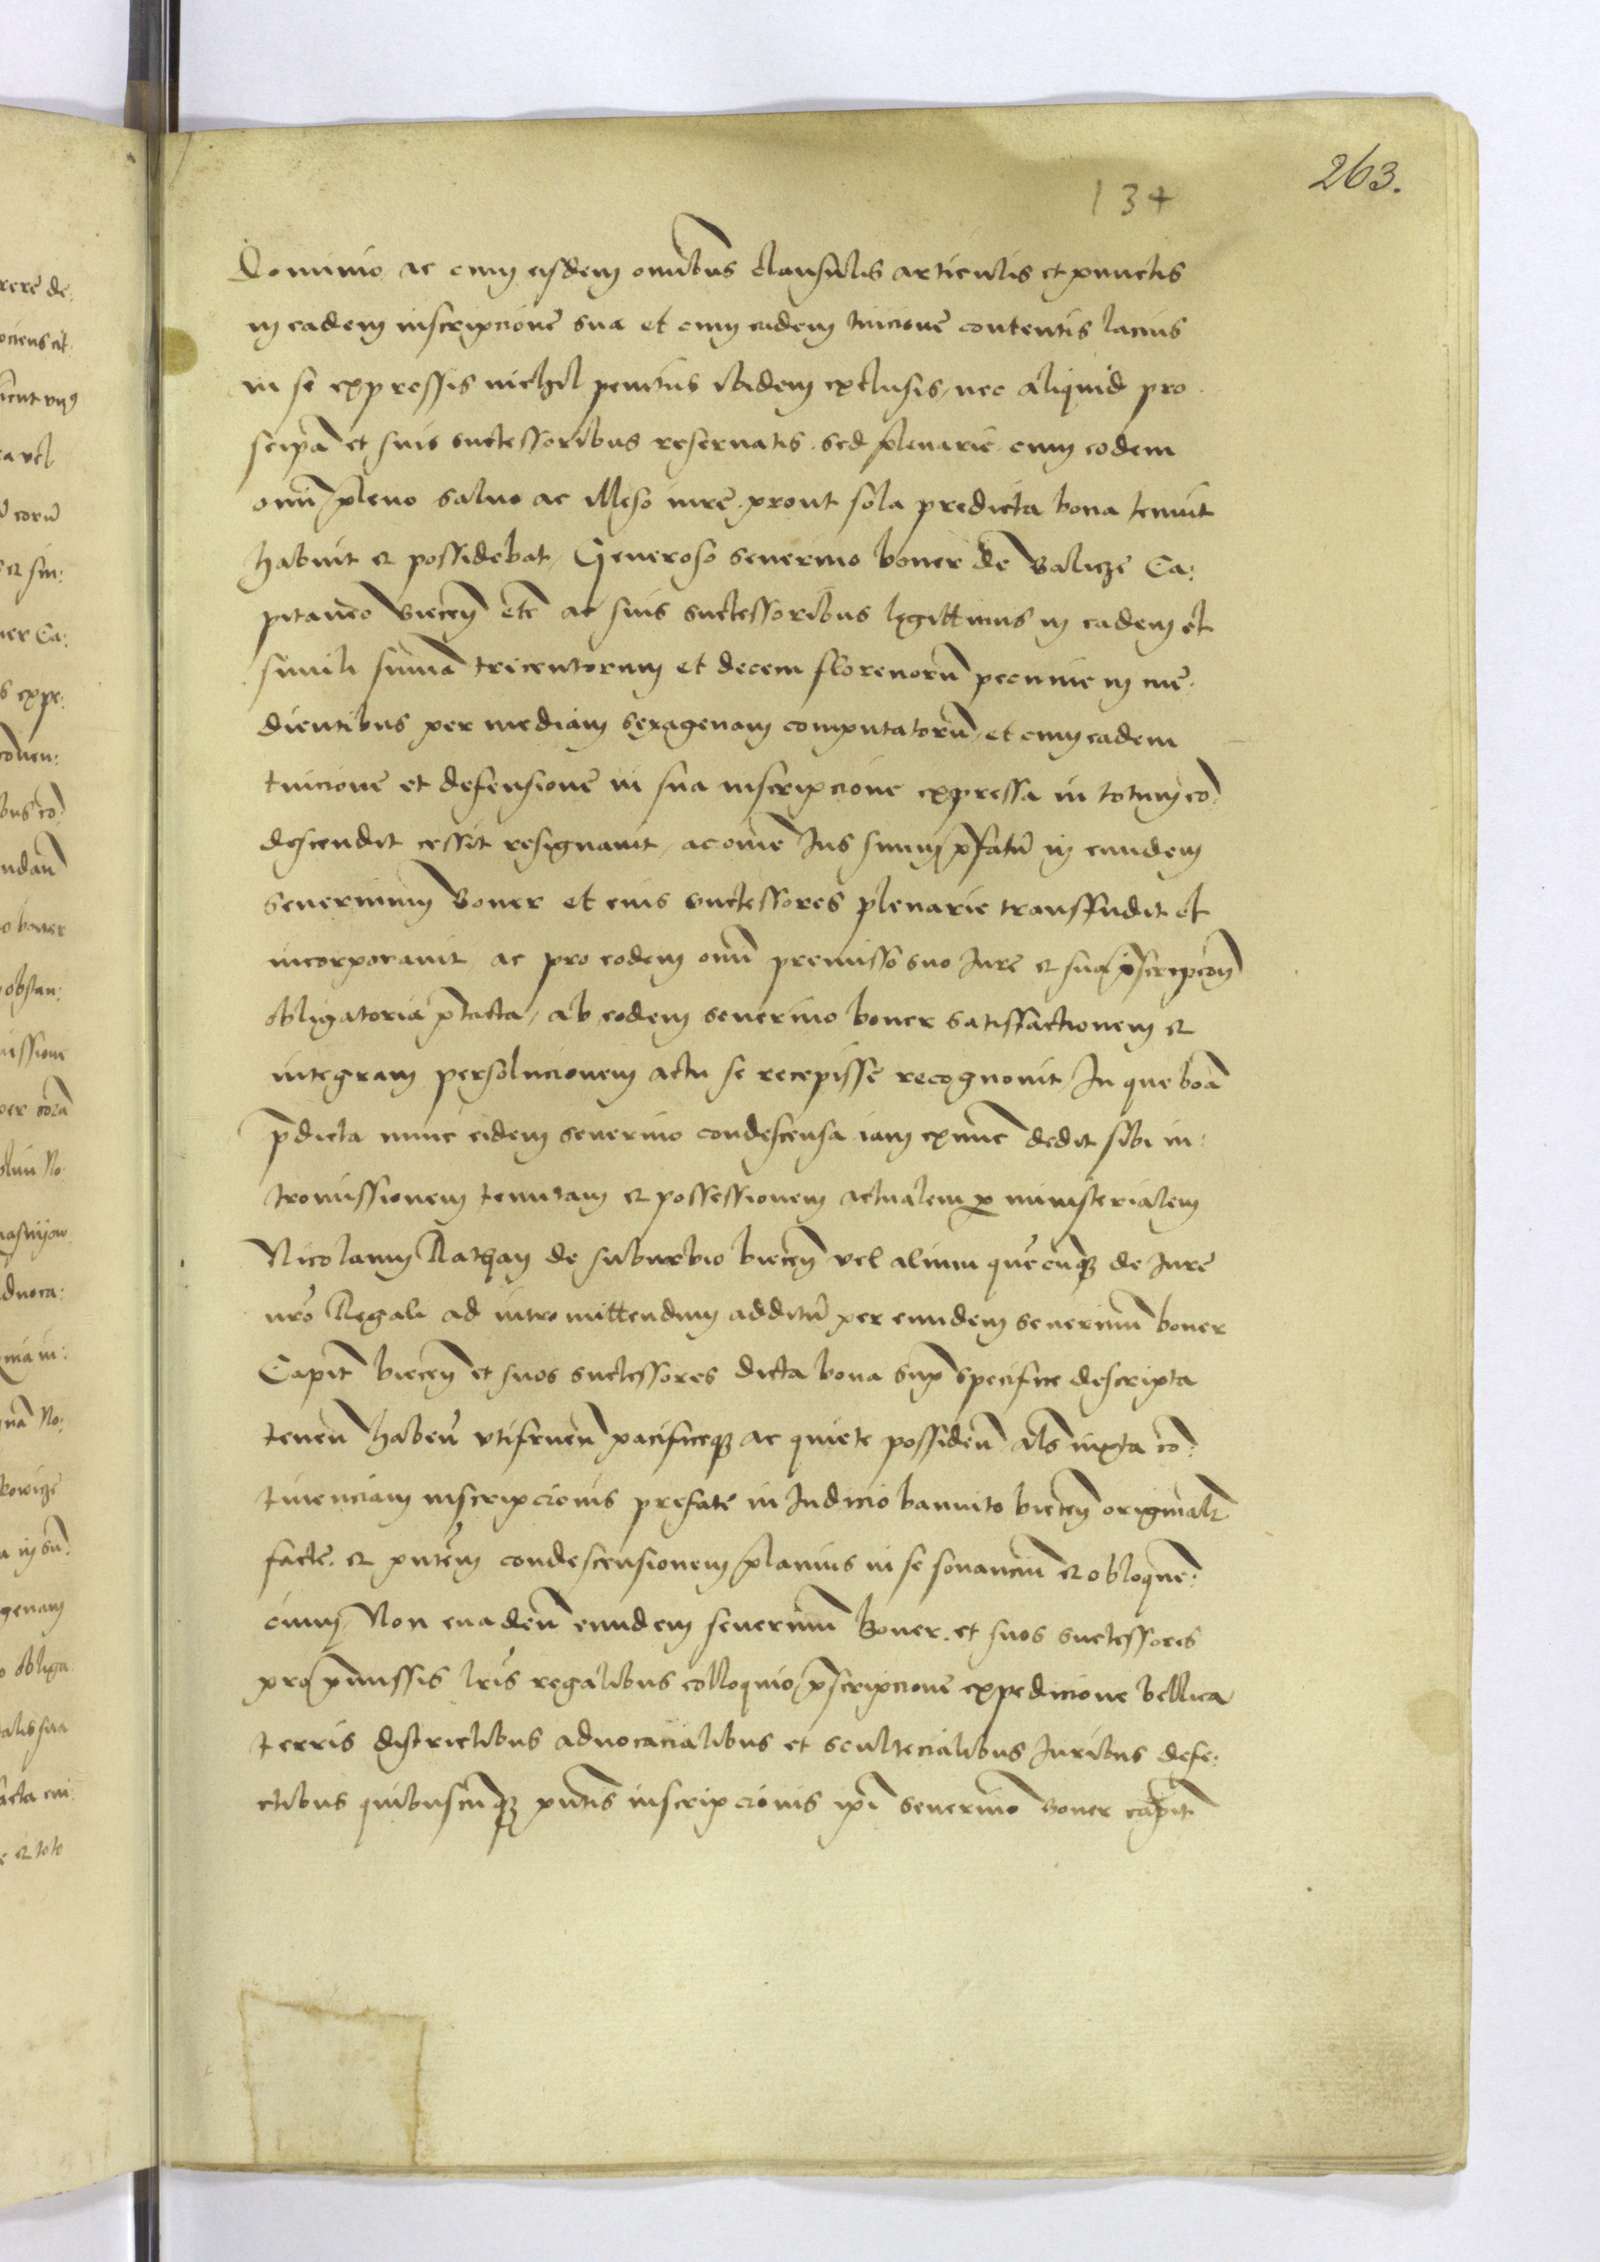 263.
134
Dominio ac cum eisdem omībus clausulis articulis et punctis
in eadem inscripcione sua et cum eadem tuicione contentis lacius
in se expressis nichil penitus ibidem exclusis, nec aliquid pro
seipā et suis successoribus reservatis. sed plenarie cum eodem
omī pleno salvo ac illeso iure prout sola predicta bona tenuit
habuit et possidebat, Generoso Severino boner de Balicze Ca:
pitaneo Biecen̄ etc̄ ac suis successoribus legittimis in eadem et
simili summa tricentorum et decem florenorū pecunie in me:
dientibus per mediam sexagenam computatorū, et cum eadem
tuicione et defensione in sua inscripcione expressa in totum co̅:
descendit cessit resignavit, ac om̄e Ius suum p̄fatū in eundem
Severinum Boner et eius successores plenarie transfudit et
incorporavit, ac pro eodem omī premisso suo Iure et sua īscripcōn̄
obligatoria p̄tacta, ab eodem Severino boner satisfactionem et
integram persolucionem actu se recepisse recognovit In que bōa
p̄dicta nunc eidem Severino condescensa iam exnunc dedit sibi in:
tromissionem tenutam et possessionem actualem p̱ ministerialem
Nicolaum Rathay de suburbio biecen̄ vel alium quēcunqꝫ de Iure
nr̄o Regali ad intromittendum additū per eundem Severinū boner
Capit̄ biecen̄ et suos successores dicta bona sup̄ specifice descripta
tenen̄ haben̄ utifruen̄ pacificeqꝫ ac quiete possiden̄ al̄s iuxta cō:
tinenciam inscripcionis prefate in Iudicio bannito biecen̄ originalr̄
facte. et pn̄tem condescensionem planius in se sonanciū et obloquē:
cium, Non evaden̄ eundem Severinū Boner. et suos successores
pro p̄missis lr̄is regalibus colloquio p̄scripcione expedicione bellica
terris districtibus advocacialibus et scultecialibus Iuribus defe:
ctibus quibuscūqꝫ pn̄tis inscripcionis ip̄i Severino Boner capit̄